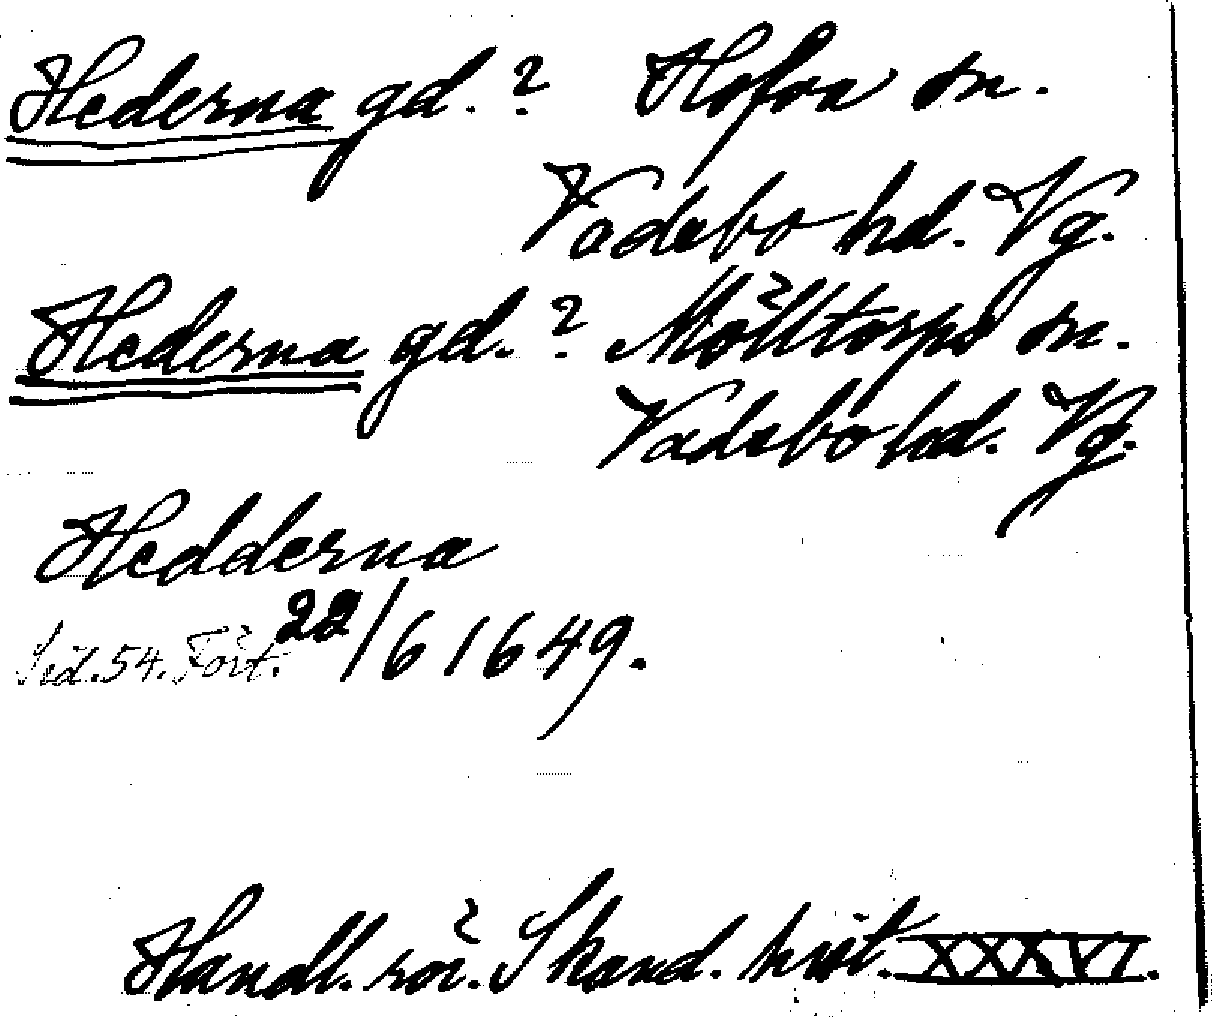 Hederna gd. ? Hofva sn.
Vadsbo hd. Vg.
Hederna gd. ? Mölltorps sn.
Vadsbo hd. Vg.
Hedderna
Sid. 54. Fört. 22/6 1649.
Handl. rör. Skand. hist. XXXVI.